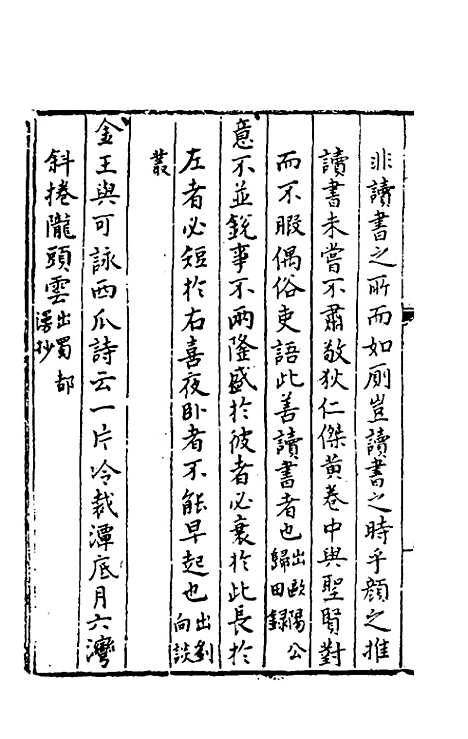 非讀書之所而如厠豈讀書之時乎顏之推
讀書未嘗不肅敬狄仁傑黃卷中與聖賢對
而不暇偶俗吏語此善讀書者也出歐陽公歸田錄
意不並銳事不兩隆盛於彼者必衰於此長於
左者必短於右喜夜卧者不能早起也出劉向談
叢
金王與可詠西瓜詩云一片冷裁潭底月六灣
斜捲隴頭雲出蜀都漫抄